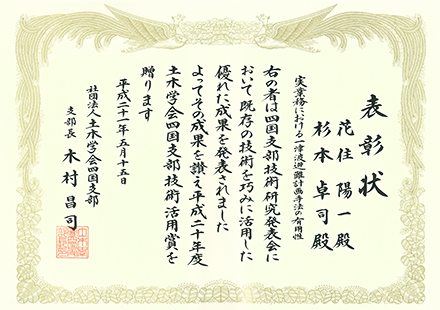 表彰状
花住陽一殿
杉本卓司殿
実業務における「津波避難計画手法の有用性
右の者は四国支部技術研究発表会に
おいて既存の技術を巧みに活用した
優れた成果を発表されました
よってその成果を讃え平成二十年度
土木学会四国支部技術活用賞を
贈ります
平成二十一年五月十五日
社団法人土木学会四国支部
支部長 木村昌司